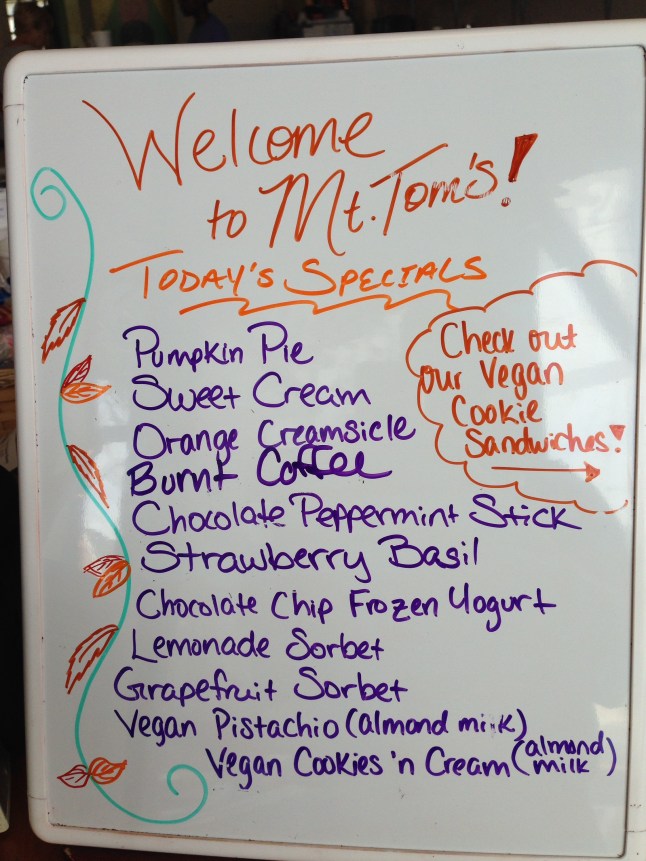 Welcome
to Mt. Tom's!
TODAY'S SPECIALS
Pumpkin Pie
Sweet Cream
Orange Creamsicle
Burnt Coffee
Chocolate Peppermint Stick
Strawberry Basil
Chocolate Chip Frozen Yogurt
Lemonade Sorbet
Grapefruit Sorbet
Vegan Pistachio (almond milk)
Vegan Cookies 'n Cream (almond milk)
Check out
our Vegan
Cookie
Sandwiches!